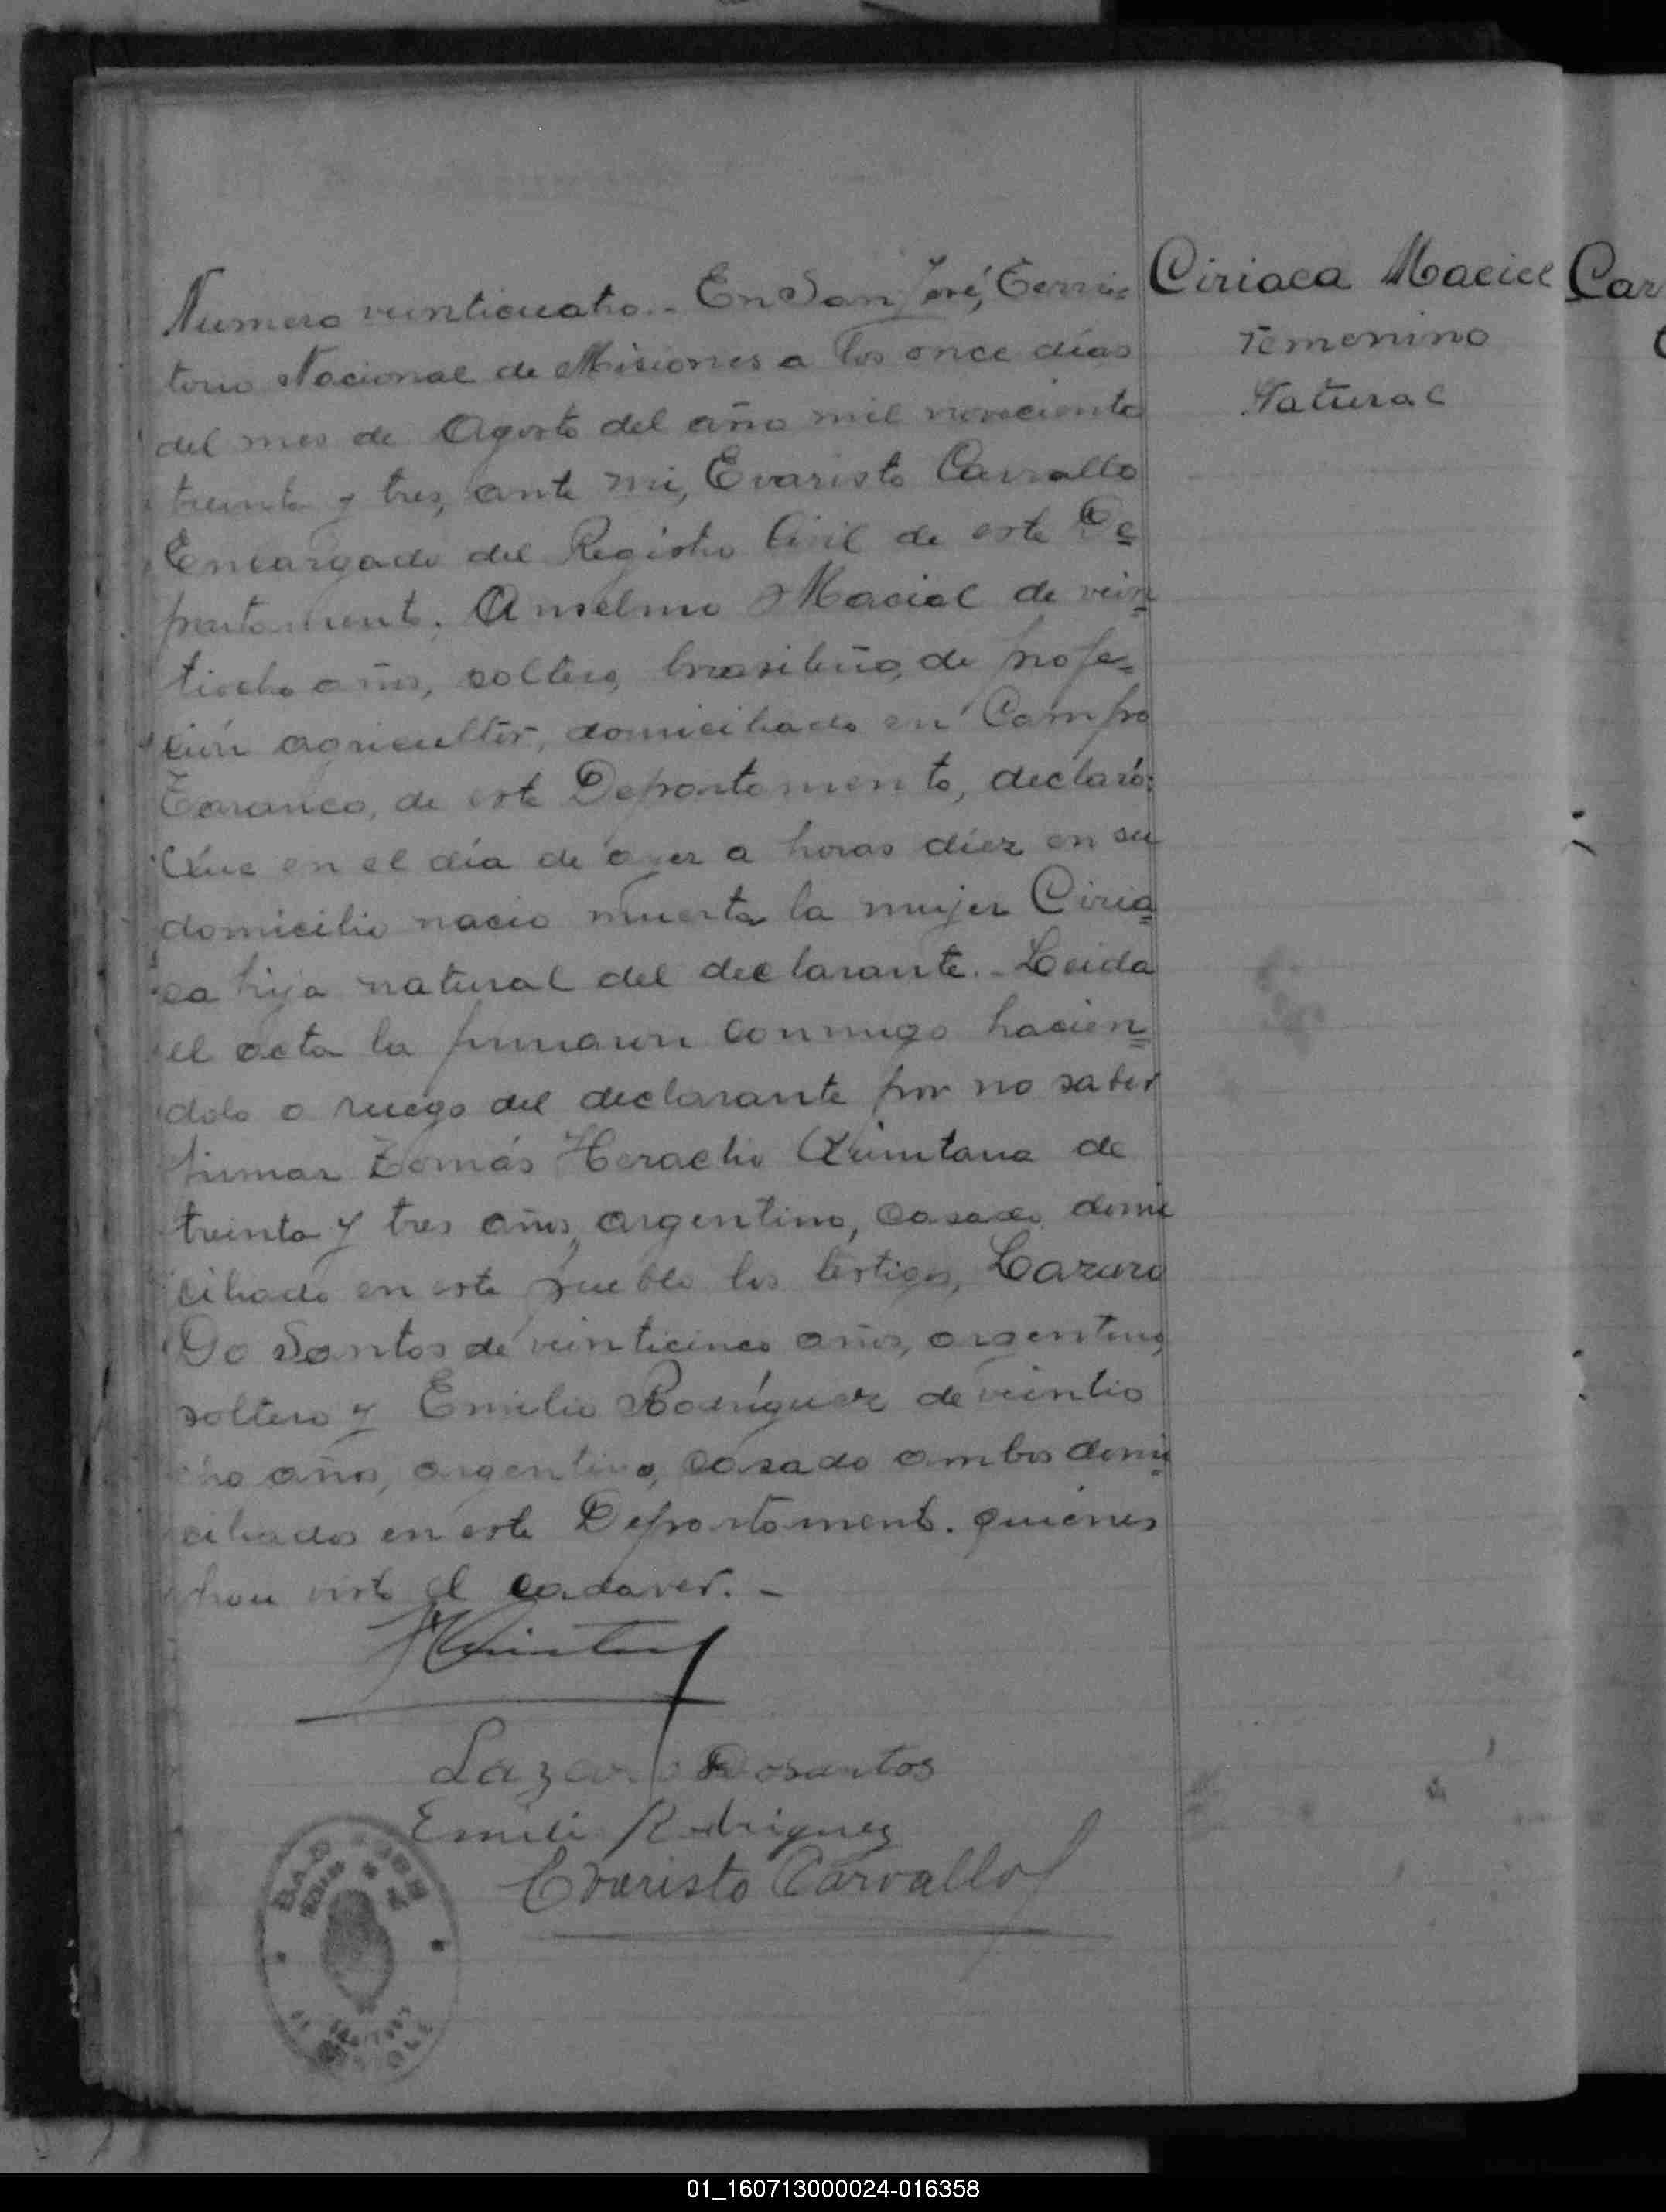 Numero veinticuatro.- En San José, Terri=
torio Nacional de Misiones a los once días
del mes de Agosto del año mil novecientos
treinta y tres, ante mi, Evaristo Carvallo
Encargado del Registro Civil de este De
partamento. Anselmo Maciel de vein
tiocho años, soltero, brasileño, de profe=
ción agricultor, domiciliado en Campo
Taranco, de este Departamento, declaró:
Que en el día de ayer a horas diez en su
domicilio nacio muerta la mujer Ciria
ca hija natural del declarante.- Leida
el acta la firmaron conmigo hacien
dolo a ruego del declarante por no saber
firmar Tomás Heraclio Quintana de
treinta y tres años, argentino, casado, domi
ciliado en este pueblo los testigos, Lazaro
Do Santos de veinticinco años, argentino,
soltero y Emilio Rodríguez de veintio
cho años, argentino, casado ambos domi
ciliados en este Departamento. quienes
han visto el cadaver.-
Lazaro Dosantos
Emili Rodriguez
Evaristo Carvallo
Ciriaca Maciel
Femenino
Natural
Car
01_160713000024-016358